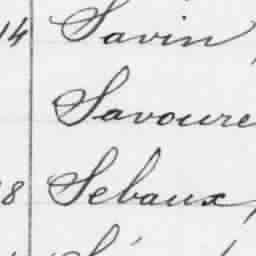 14 Savin
Savoure
8 Sebaux,